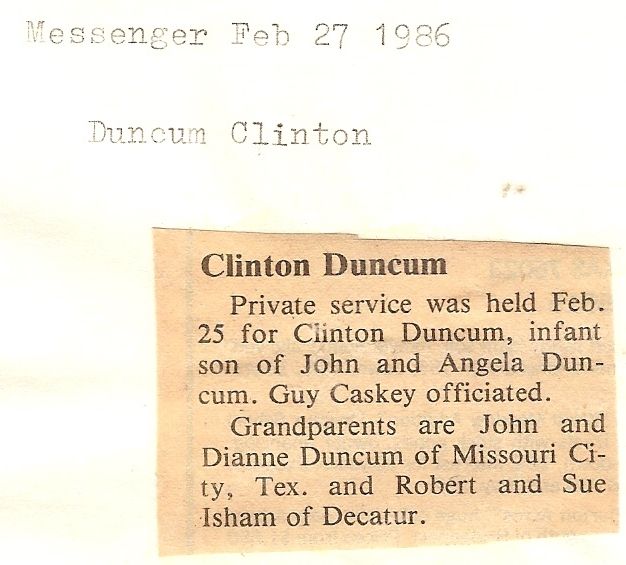 Messenger Feb 27 1986
Duncum Clinton
Clinton Duncum
Private service was held Feb.
25 for Clinton Duncum, infant
son of John and Angela Dun-
cum. Guy Caskey officiated.
Grandparents are John and
Dianne Duncum of Missouri Ci-
ty, Tex. and Robert and Sue
Isham of Decatur.